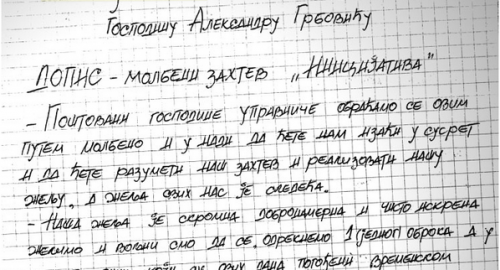 Господину Александру Грбовићу
ДОПИС - МОЛБЕНИ ЗАХТЕВ „ИНИЦИЈАТИВА"
- ПОШТОВАНИ ГОСПОДИНЕ УПРАВНИЧЕ ОБРАЋАМО СЕ ОВИМ
ПУТЕМ МОЛБЕНО И У НАДИ ДА ЋЕТЕ НАМ ИЗАЋИ У СУСРЕТ
И ДА ЋЕТЕ РАЗУМЕТИ НАШ ЗАХТЕВ И РЕАЛИЗОВАТИ НАШУ
ЖЕЉУ, А ЖЕЉА СВИХ НАС ЈЕ СЛЕДЕЋА.
- НАША ЖЕЉА ЈЕ СКРОМНА ДОБРОНАМЕРНА И ЧИСТО ИСКРЕНА
ЖЕЛИМО И ВОЉНИ СМО ДА СЕ ОДРЕКНЕМО 1 (ЈЕДНОГ) ОБРОКА А У
ОВИХ ДАНА ПОГОЂЕНИ ВРЕМЕНСКОМ